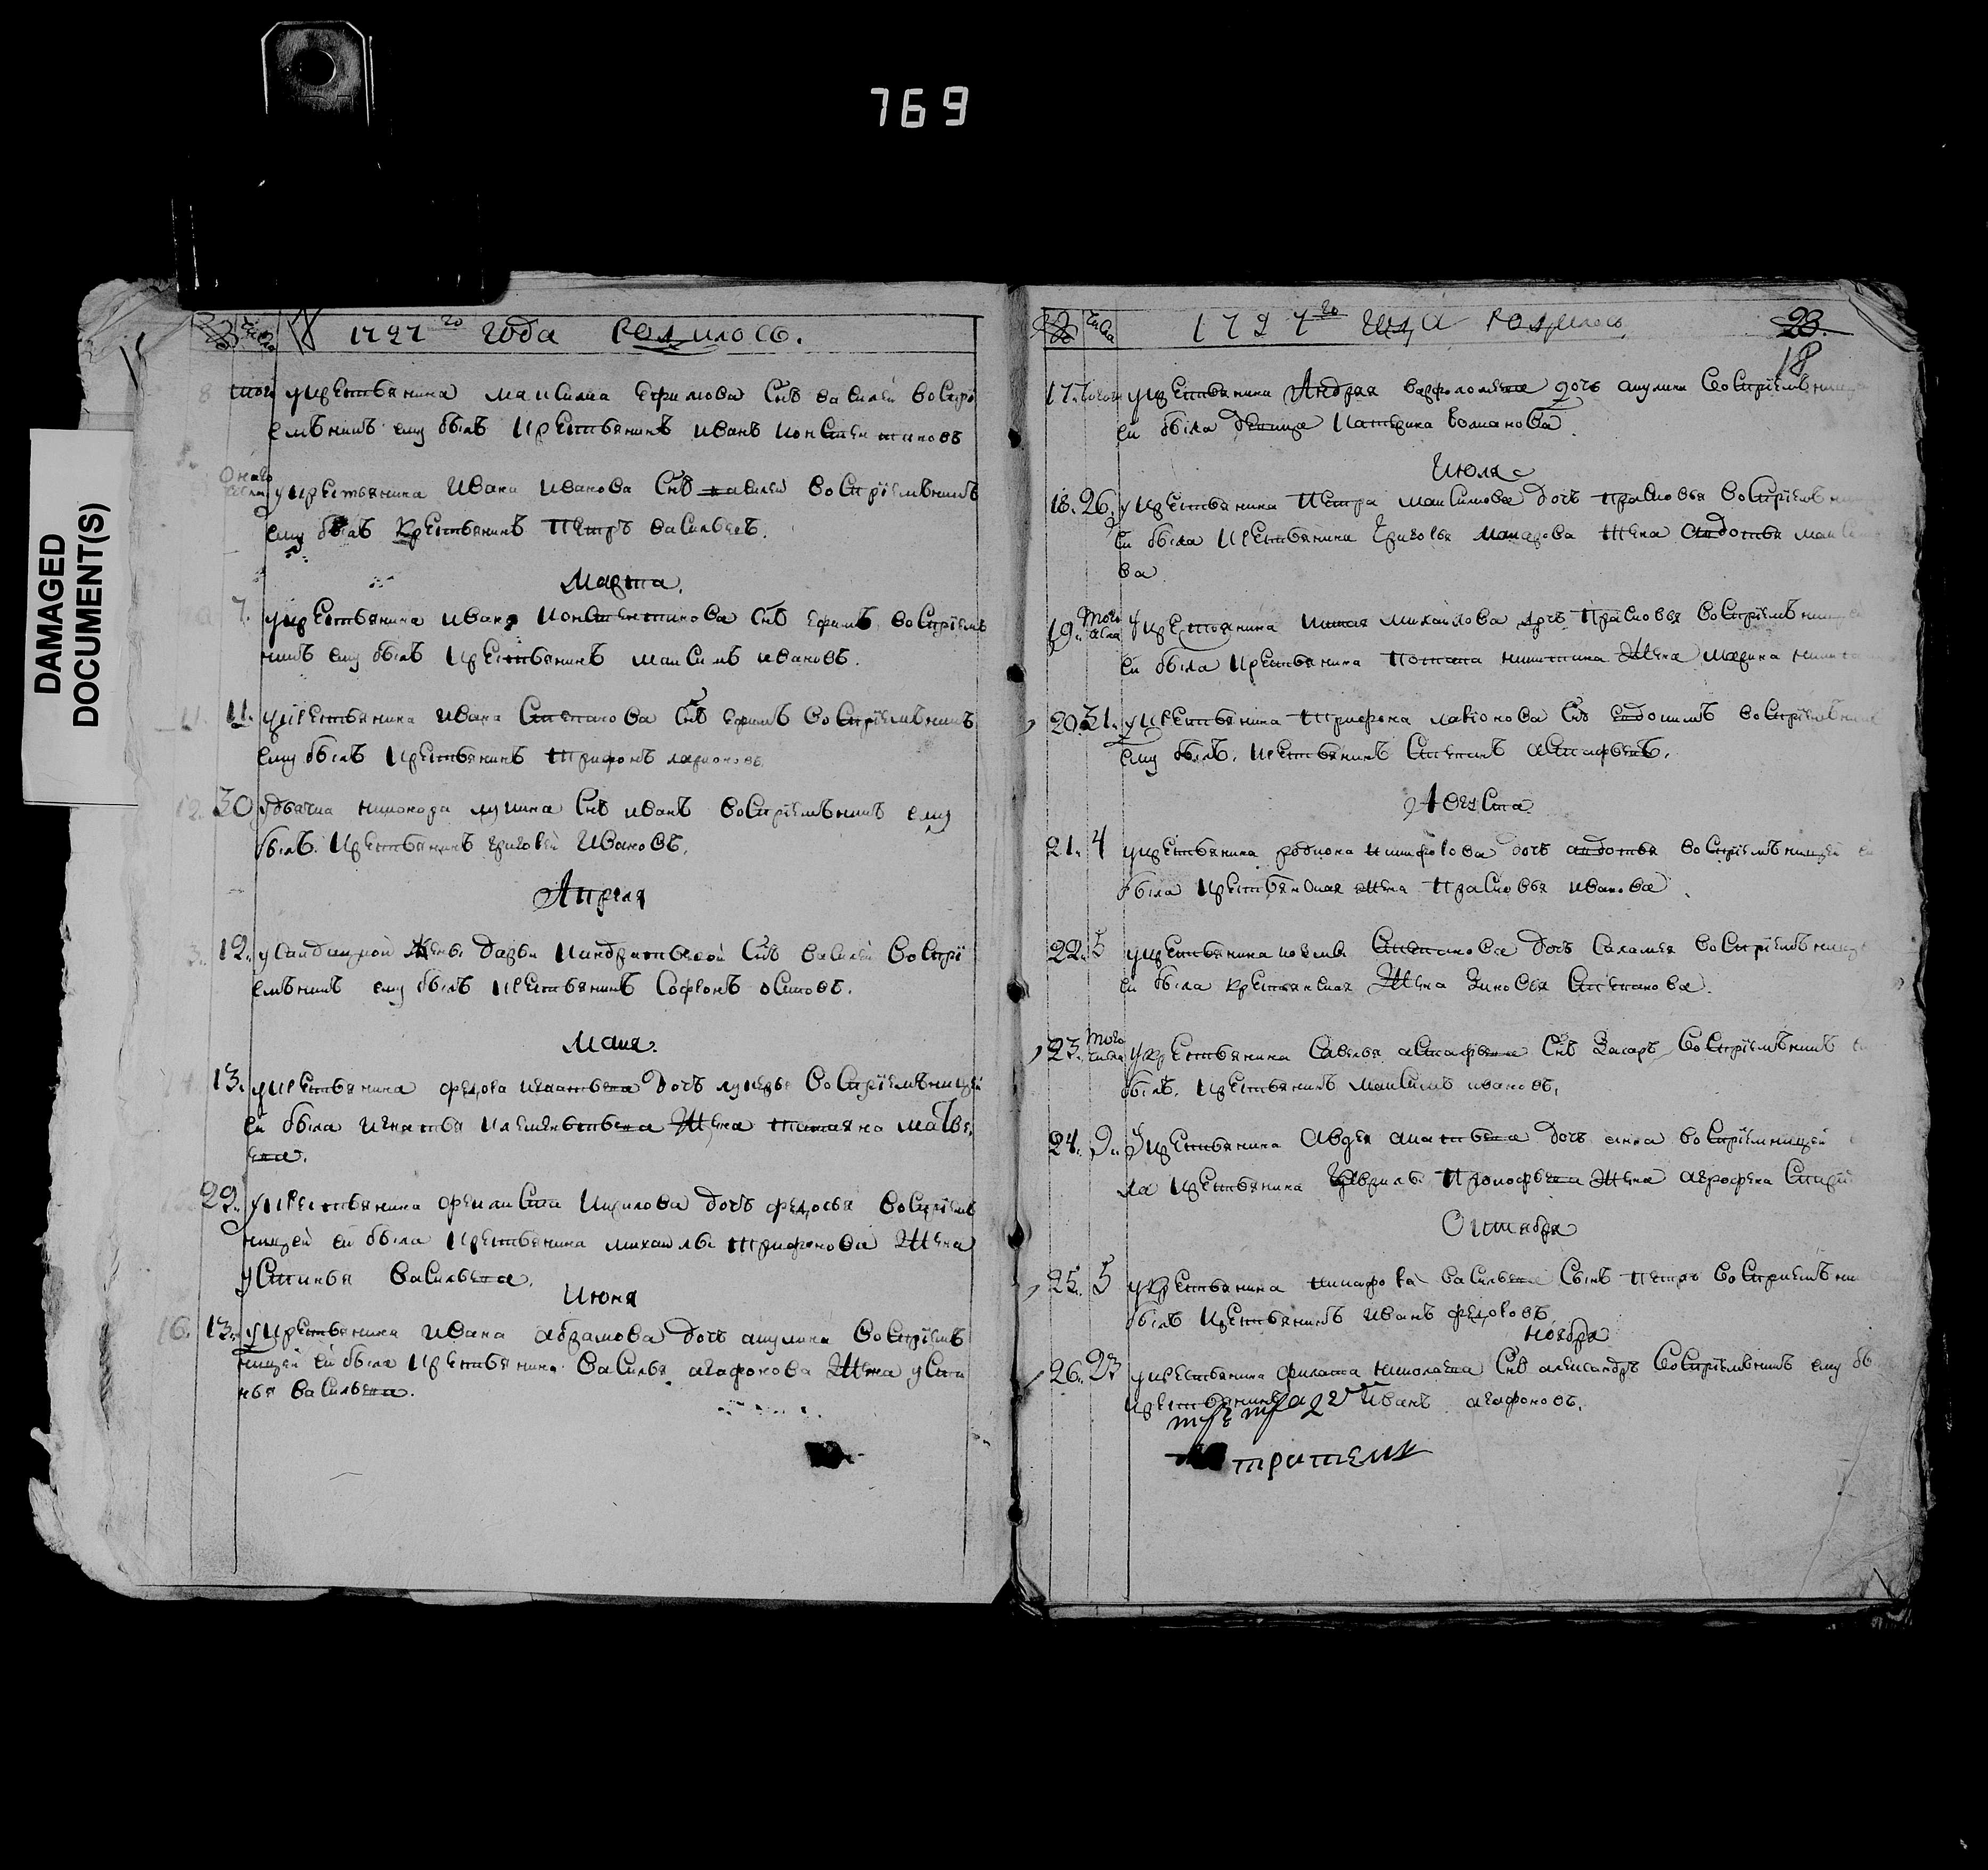 769
DAMAGED
DOCUMENT(S)
1797 го Года Родилось.
8 того укрестьянина максима ефимова Снъ василей воспрі
емъникъ ему былъ крестьянинъ иванъ константиновъ
оного укрестьянина Ивана Иванова Снъ василей воспріемъникъ
ему былъ крестьянинъ Петръ васильевъ.
Марта.
7. укрестьянина ивана константинова Снъ ефимъ воспріемъ
никъ ему былъ крестьянинъ максимъ ивановъ.
11. 11. укрестьянина ивана Степанова Снъ ефимъ воспріемъникъ
ему былъ крестьянинъ трифонъ ларионовъ
12. 30 удьячка никонора лукина Снъ иванъ воспріемъникъ ему
былъ крестьянинъ григорей Ивановъ.
Апреля
3. 12. усалдацкой жены дарьи кандратьевой Снъ василей воспрі
емъникъ ему былъ крестьянинъ Софронъ осиповъ.
Маия.
13. укрестьянина федора игнатьева дочь лукерья воспріемъницей
ей была игнатья клементьева Жена татьяна матве
ева.
29. укрестьянина феклиста кирилова дочь федосья воспріемъ
ницей ей была крестьянина михаилы трифонова Жена
устинья васильева.
Июня
16. 13. укрестьянина ивана абрамова дочь акулина воспріемъ
ницей ей была крестьянина василья агафонова Жена усти
нья васильева.
1797 го Года Родилось
23.
18
17. того укрестьянина Андрея варфоломеева дочь акулина воспріемъница
ей была девица катерина романова.
Июля
18. 26. укрестьянина петра максимова дочь прасковья воспріемъни
ей была крестьянина григорья макарова жена авдотья макси
ва
19. того числа укрестьянина михайлова дочь прасковья воспріемънице
ей была крестьянина потапа никитина Жена марина никита
20. 31. укрестьянина трифона лариона Снъ евдокимъ воспріемъник
ему былъ. крестьянинъ Степанъ астафьевъ.
Августа
21. 4 укрестьянина родиона никифорова дочь авдотья воспріемъницей ей
была крестьянская жена прасковья иванова.
22. 5 укрестьянина Степанова дочь Саламея воспріемънице
ей была крестьянская Жена Зиновея Степанова.
23. того числа укрестьянина Савелья астафьева Снъ Захаръ воспріемъникъ
былъ. крестьянинъ максимъ ивановъ.
24. 9. укрестьянина Авдея дочь анна воспріемницей
ла крестьянина гаврилы прокофьева Жена агрофена
Октября
25. 5 укрестьянина никифора васильева Сынъ петръ воспріемъни
былъ крестьянинъ иванъ федоровъ.
ноября
26. 23 укрестьянина филата николаева Снъ александръ воспріемъникъ ему бы
крестьянинъ Иванъ агафоновъ.